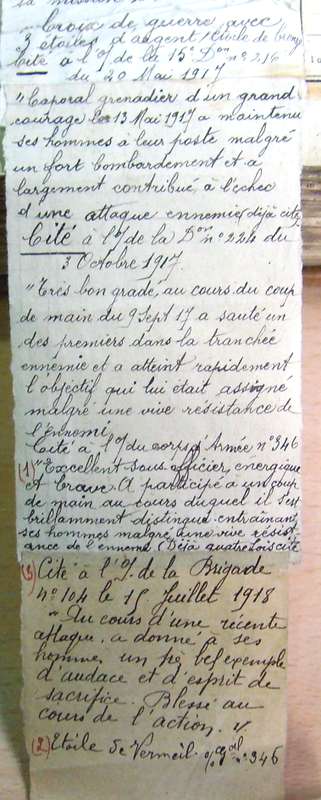 la mission
Croix de guerre avec
3 étoiles d'argent, 1 étoile de bronze
Cité à l'O/ de la 15e Don n° 216
du 20 Mai 1917
"Caporal grenadier d'un grand
courage le 13 Mai 1917 a maintenu
ses hommes à leur poste malgré
un fort bombardement et a
largement contribué à l'échec
d'une attaque ennemie (déjà cité)
Cité à l'O/ de la Don n° 224 du
3 Octobre 1917.
"Très bon gradé, au cours du coup
de main du 9 Sept 17 a sauté un
des premiers dans la tranchée
ennemie et a atteint rapidement
l'objectif qui lui était assigné
malgré une vive résistance de
l'Ennemi,
Cité à l'O/ du corps d'Armée n° 346
(1) "Excellent sous officier, énergique
et brave. A participé à un coup
de main au cours duquel il s'est
brillamment distingué entraînant
ses hommes malgré une vive résist
ance de l'ennemi (Déjà quatre fois cité
(3) Cité à l'O/. de la Brigade
N° 104 le 15 Juillet 1918
"Au cours d'une récente
attaque, a donné à ses
homme, un bel exemple
d'audace et d'esprit de
sacrifice. Blessé au
cours de l'action.
(2) Etoile de Vermeil n° 346